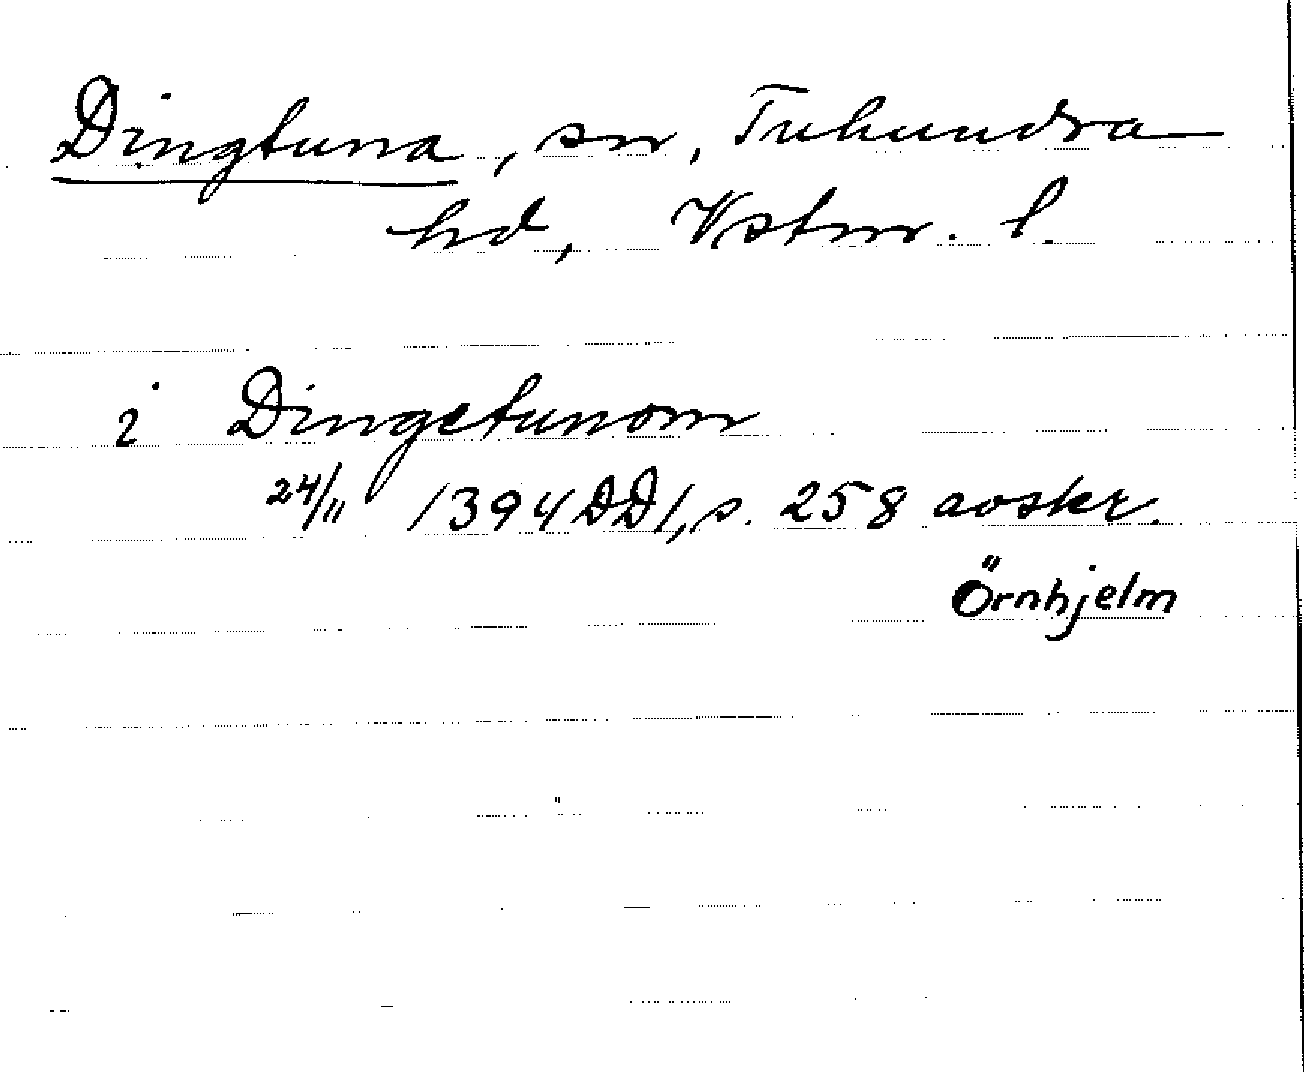 Dingtuna, sn, Tuhundra
hd, Vstm. l.
i Dingetunom
24/11 1394 DD1, s. 258 avskr.
Örnhjelm